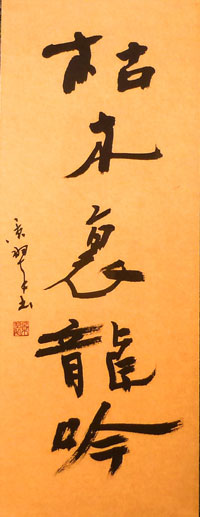 枯木裏龍吟